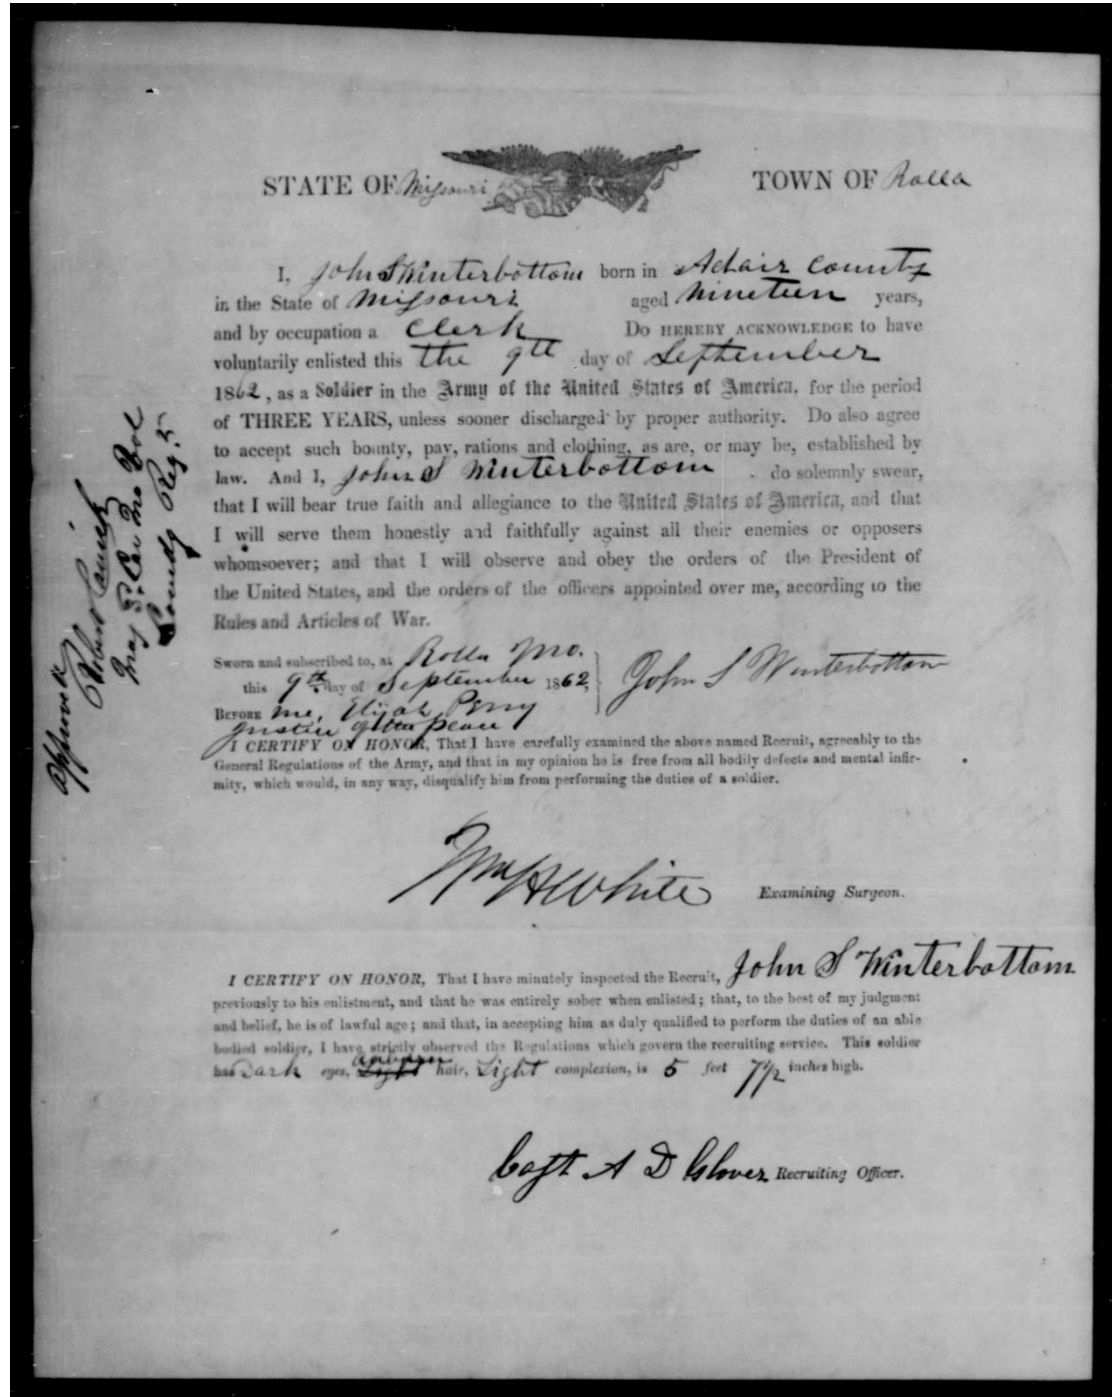 STATE OF Missouri
TOWN OF Rolla
I, John S Winterbottom born in Adair County
in the State of Missouri aged Nineteen years,
and by occupation a Clerk Do HEREBY ACKNOWLEDGE to have
voluntarily enlisted this the 9th day of September
1862, as a Soldier in the Army of the United States of America, for the period
of THREE YEARS, unless sooner discharged by proper authority. Do also agree
to accept such bounty, pay, rations and clothing, as are, or may be, established by
law. And I, John S Winterbottom do solemnly swear,
that I will bear true faith and allegiance to the United States of America, and that
I will serve them honestly and faithfully against all their enemies or opposers
whomsoever; and that I will observe and obey the orders of the President of
the United States, and the orders of the officers appointed over me, according to the
Rules and Articles of War.
Sworn and subscribed to, at Rolla Mo.
this 9th day of September 1862,
John S Winterbottom
BEFORE me, Elijah Perry
Justice of the peace
I CERTIFY ON HONOR, That I have carefully examined the above named Recruit, agreeably to the
General Regulations of the Army, and that in my opinion he is free from all bodily defects and mental infir-
mity, which would, in any way, disqualify him from performing the duties of a soldier.
Wm H White Examining Surgeon.
I CERTIFY ON HONOR, That I have minutely inspected the Recruit, John S Winterbottom
previously to his enlistment, and that he was entirely sober when enlisted; that, to the best of my judgment
and belief, he is of lawful age; and that, in accepting him as duly qualified to perform the duties of an able
bodied soldier, I have strictly observed the Regulations which govern the recruiting service. This soldier
has Dark eyes, auburn hair, Light complexion, is 5 feet 7 1/2 inches high.
Capt A D Glover Recruiting Officer.
Approved
Robert
Maj 3. Cav Mo Vol
Comdg Reg.